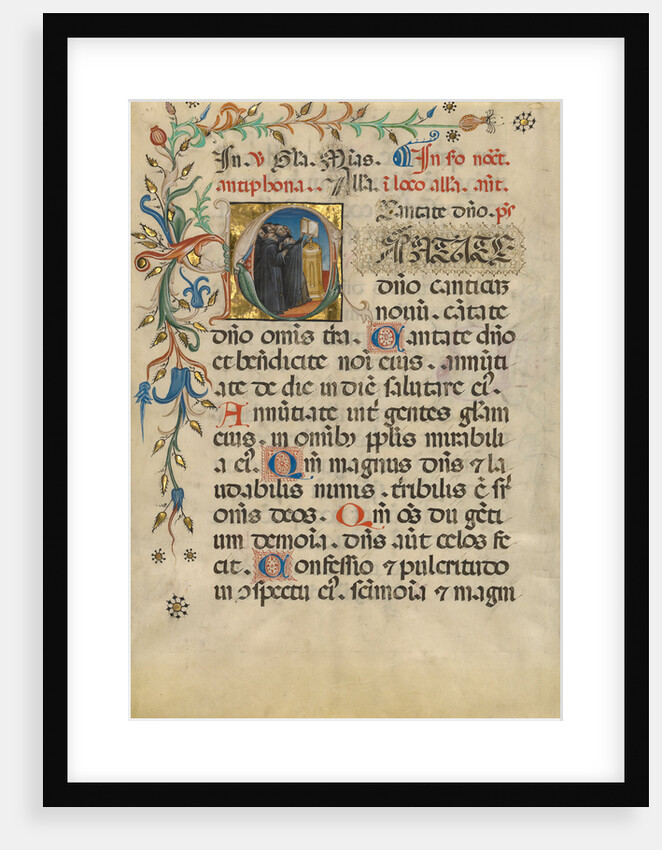 In. v̄ Gl̄a. Mias. In fo noct̄.
antiphona. All̄a. ī loco all̄a. an̄t.
Cantate dn̄o. ps̄
CANTATE
dn̄o canticū
novū. cātate
dn̄o om̄is tr̄a. Cantate dn̄o
et ben̄dicite noī eius. annūti
ate de die in diē salutare eī.
Annūtiate int̄ gentes glām
eius. in omībꝫ pp̄lis mirabili
a eī. Qm̄ magnus dn̄s ⁊ la
udabilis nimis. tr̄ibilis ē sr̄
om̄s deos. Qm̄ oēs dii gēti
um demoīa. dn̄s aūt celos fe
cit. Confessio ⁊ pulcritudo
in ↄspectu eī. sc̄imoīa ⁊ magni